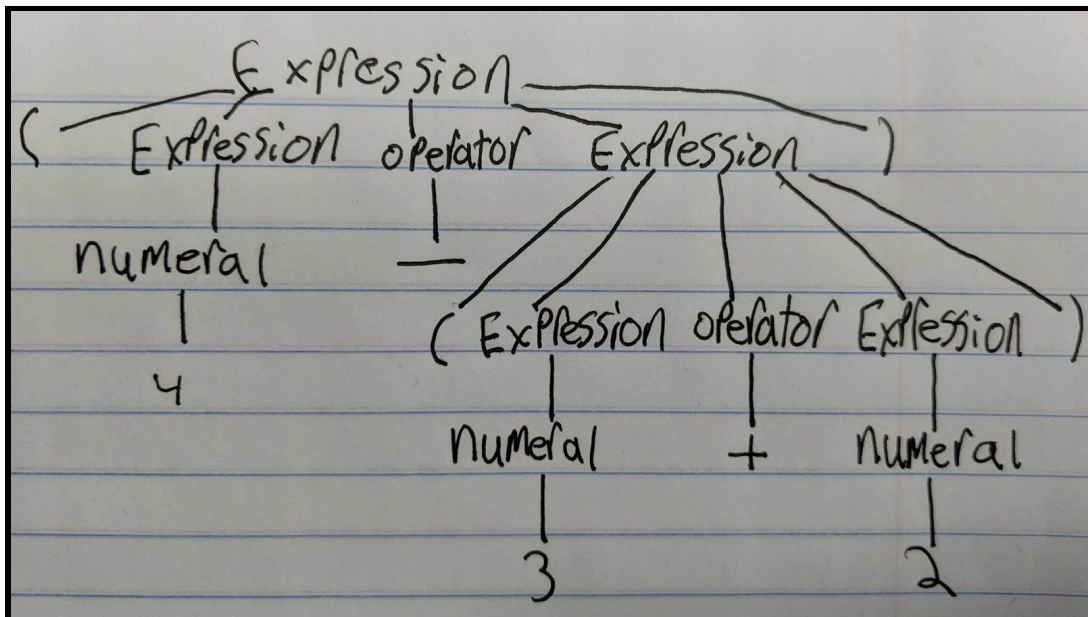 Expression
( Expression operator Expression )
numeral —
( Expression operator Expression )
4
numeral + numeral
3 2